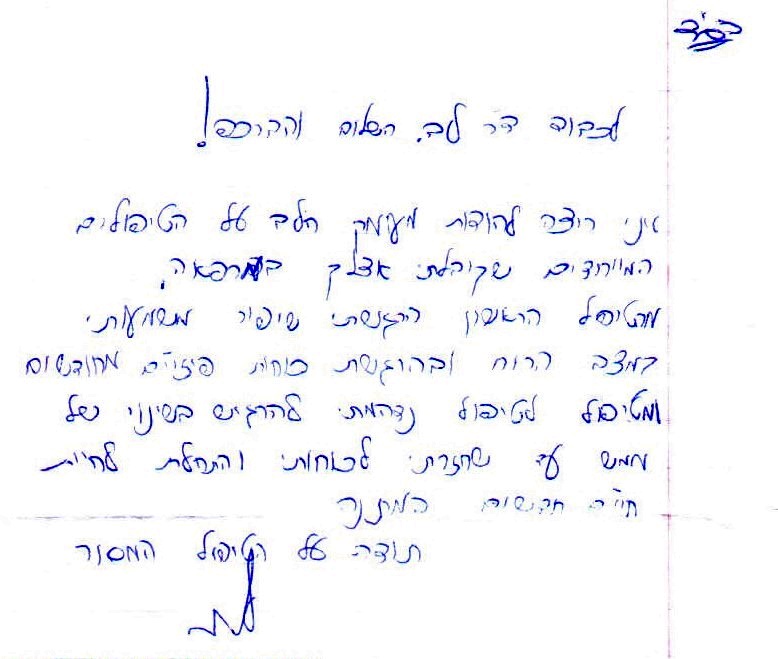 בס"ד
לכבוד ד"ר לב. השלום והברכה!
אני רוצה להודות מעומק הלב על הטיפולים
המיוחדים שקיבלתי אצלך במרפאה.
מהטיפול הראשון הרגשתי שיפור משמעותי
במצב הרוח ובהרגשת כוחות פיזיים מחודשים
ומטיפול לטיפול נדהמתי להרגיש בשינוי של
ממש עד שחזרתי לכוחותי והתחלתי לחיות
חיים חדשים במתנה
תודה על הטיפול המסור